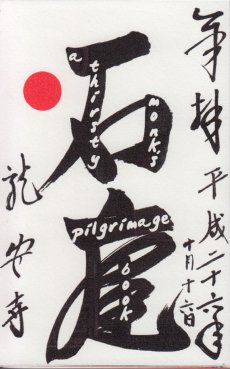 奉拝
平成二十六年
十月十六日
石庭
龍安寺
a thirsty
monk's
pilgrimage
book